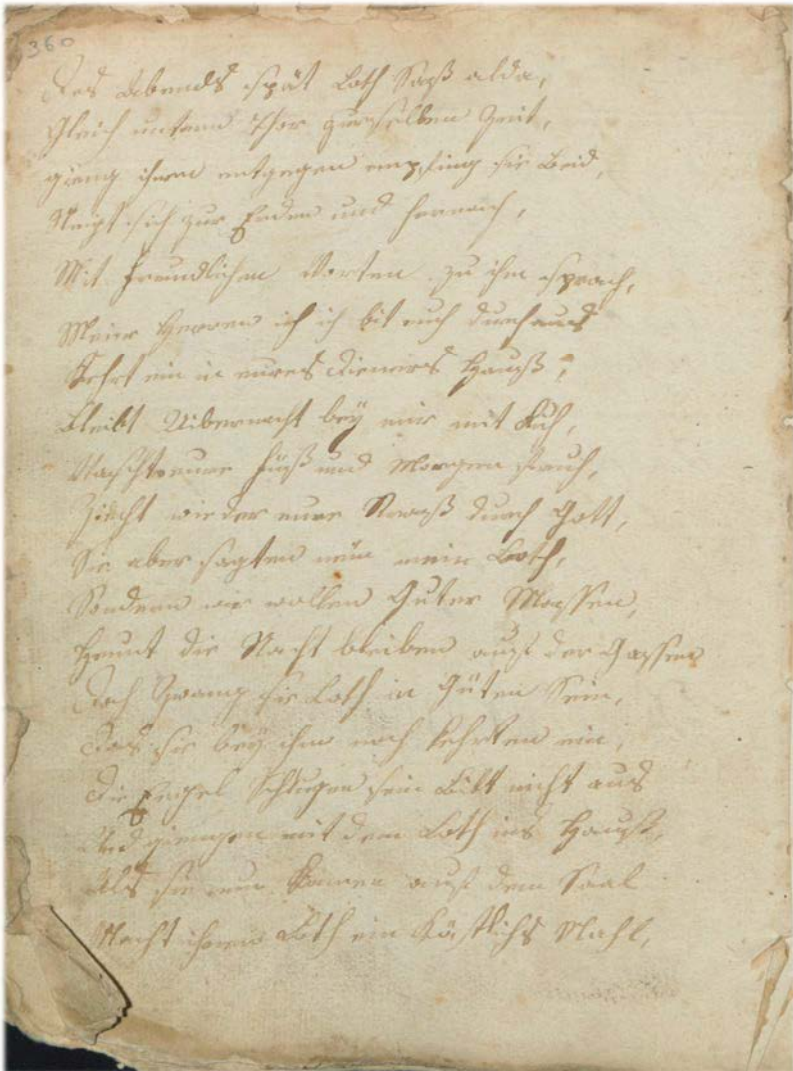 360
Des Abends spät Loth Saß alda,
Gleich unterm Thor zur selben Zeit,
gieng ihnen entgegen empfing sie Beid,
Neigt sich zur Erden und hernach,
Mit freundlichen Worten zu ihn sprach,
Meine Herren ich ich bit euch durchaus
Kehrt ein in eures Dieners Hauß,
Bleibt Uibernacht bey mir mit Ruh,
eure Füß und Morgen
Ziecht wieder eure durch Gott,
Sie aber sagten nein mein Loth,
Sondern wir wollen Guter Massen,
Heunt die Nacht bleiben auf der Gassen
Doch Zwang sie Loth in Güten Sein,
Das sie bey ihm noch kehrten ein,
Die Engel Schlugen sein Bitt nicht aus
Und giengen mit dem Loth ins Hauß,
Als sie nun kamen auf dem Saal
Macht ihnen Loth ein Köstlichs Mahl,